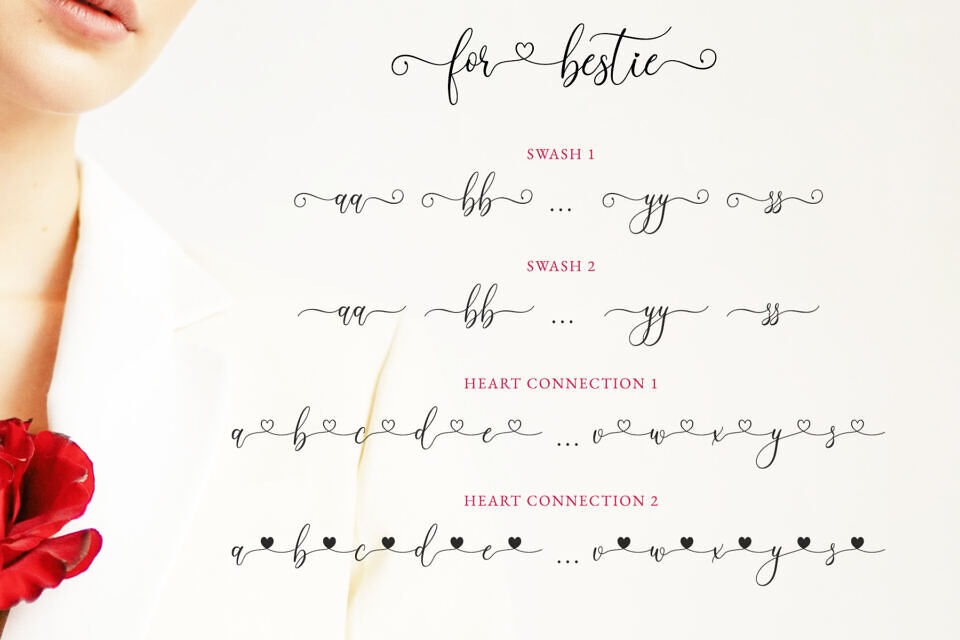 for bestie
SWASH 1
aa bb ... yy ss
SWASH 2
aa bb ... yy ss
HEART CONNECTION 1
a♡b♡c♡d♡e♡ ... v♡w♡x♡y♡s♡
HEART CONNECTION 2
a♥b♥c♥d♥e♥ ... v♥w♥x♥y♥s♥